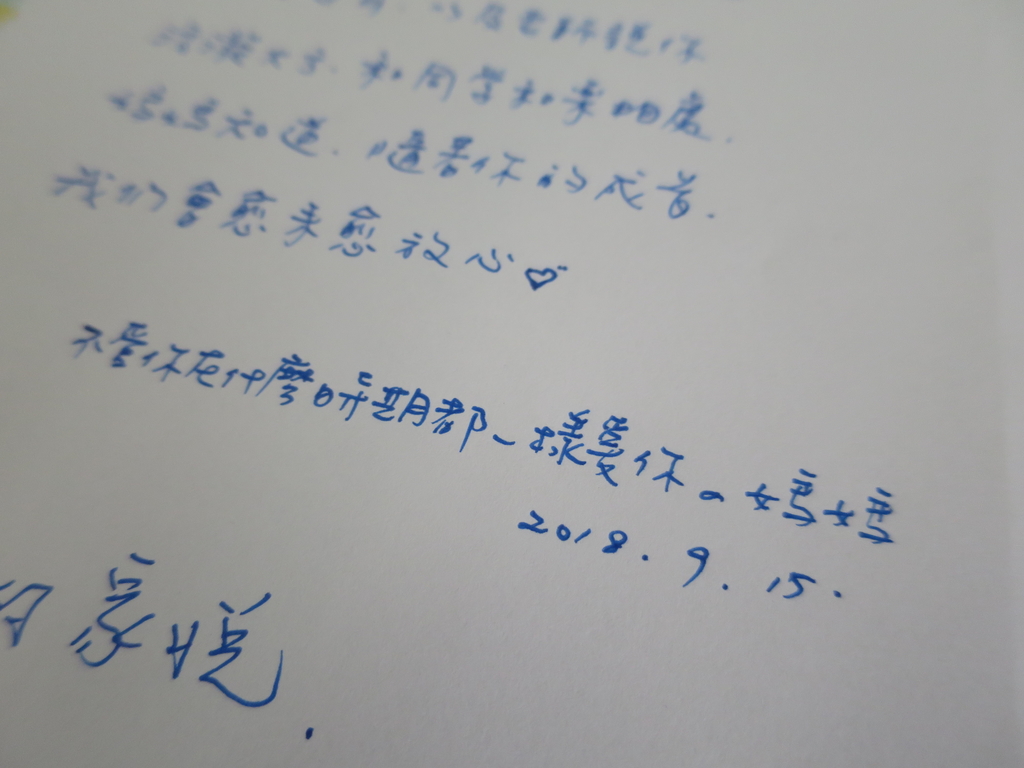 老師說你
活潑大方.和同學和樂相處.
媽媽知道.隨著你的成長.
我們會愈來愈放心♡
不管你在什麼時期都一樣愛你。媽媽
2018.9.15.
家悅.